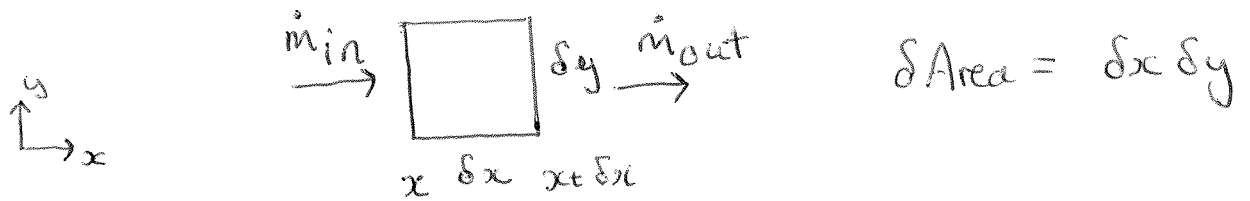 ṁin
δy
ṁout
δArea = δx δy
y
x
x δx x+δx